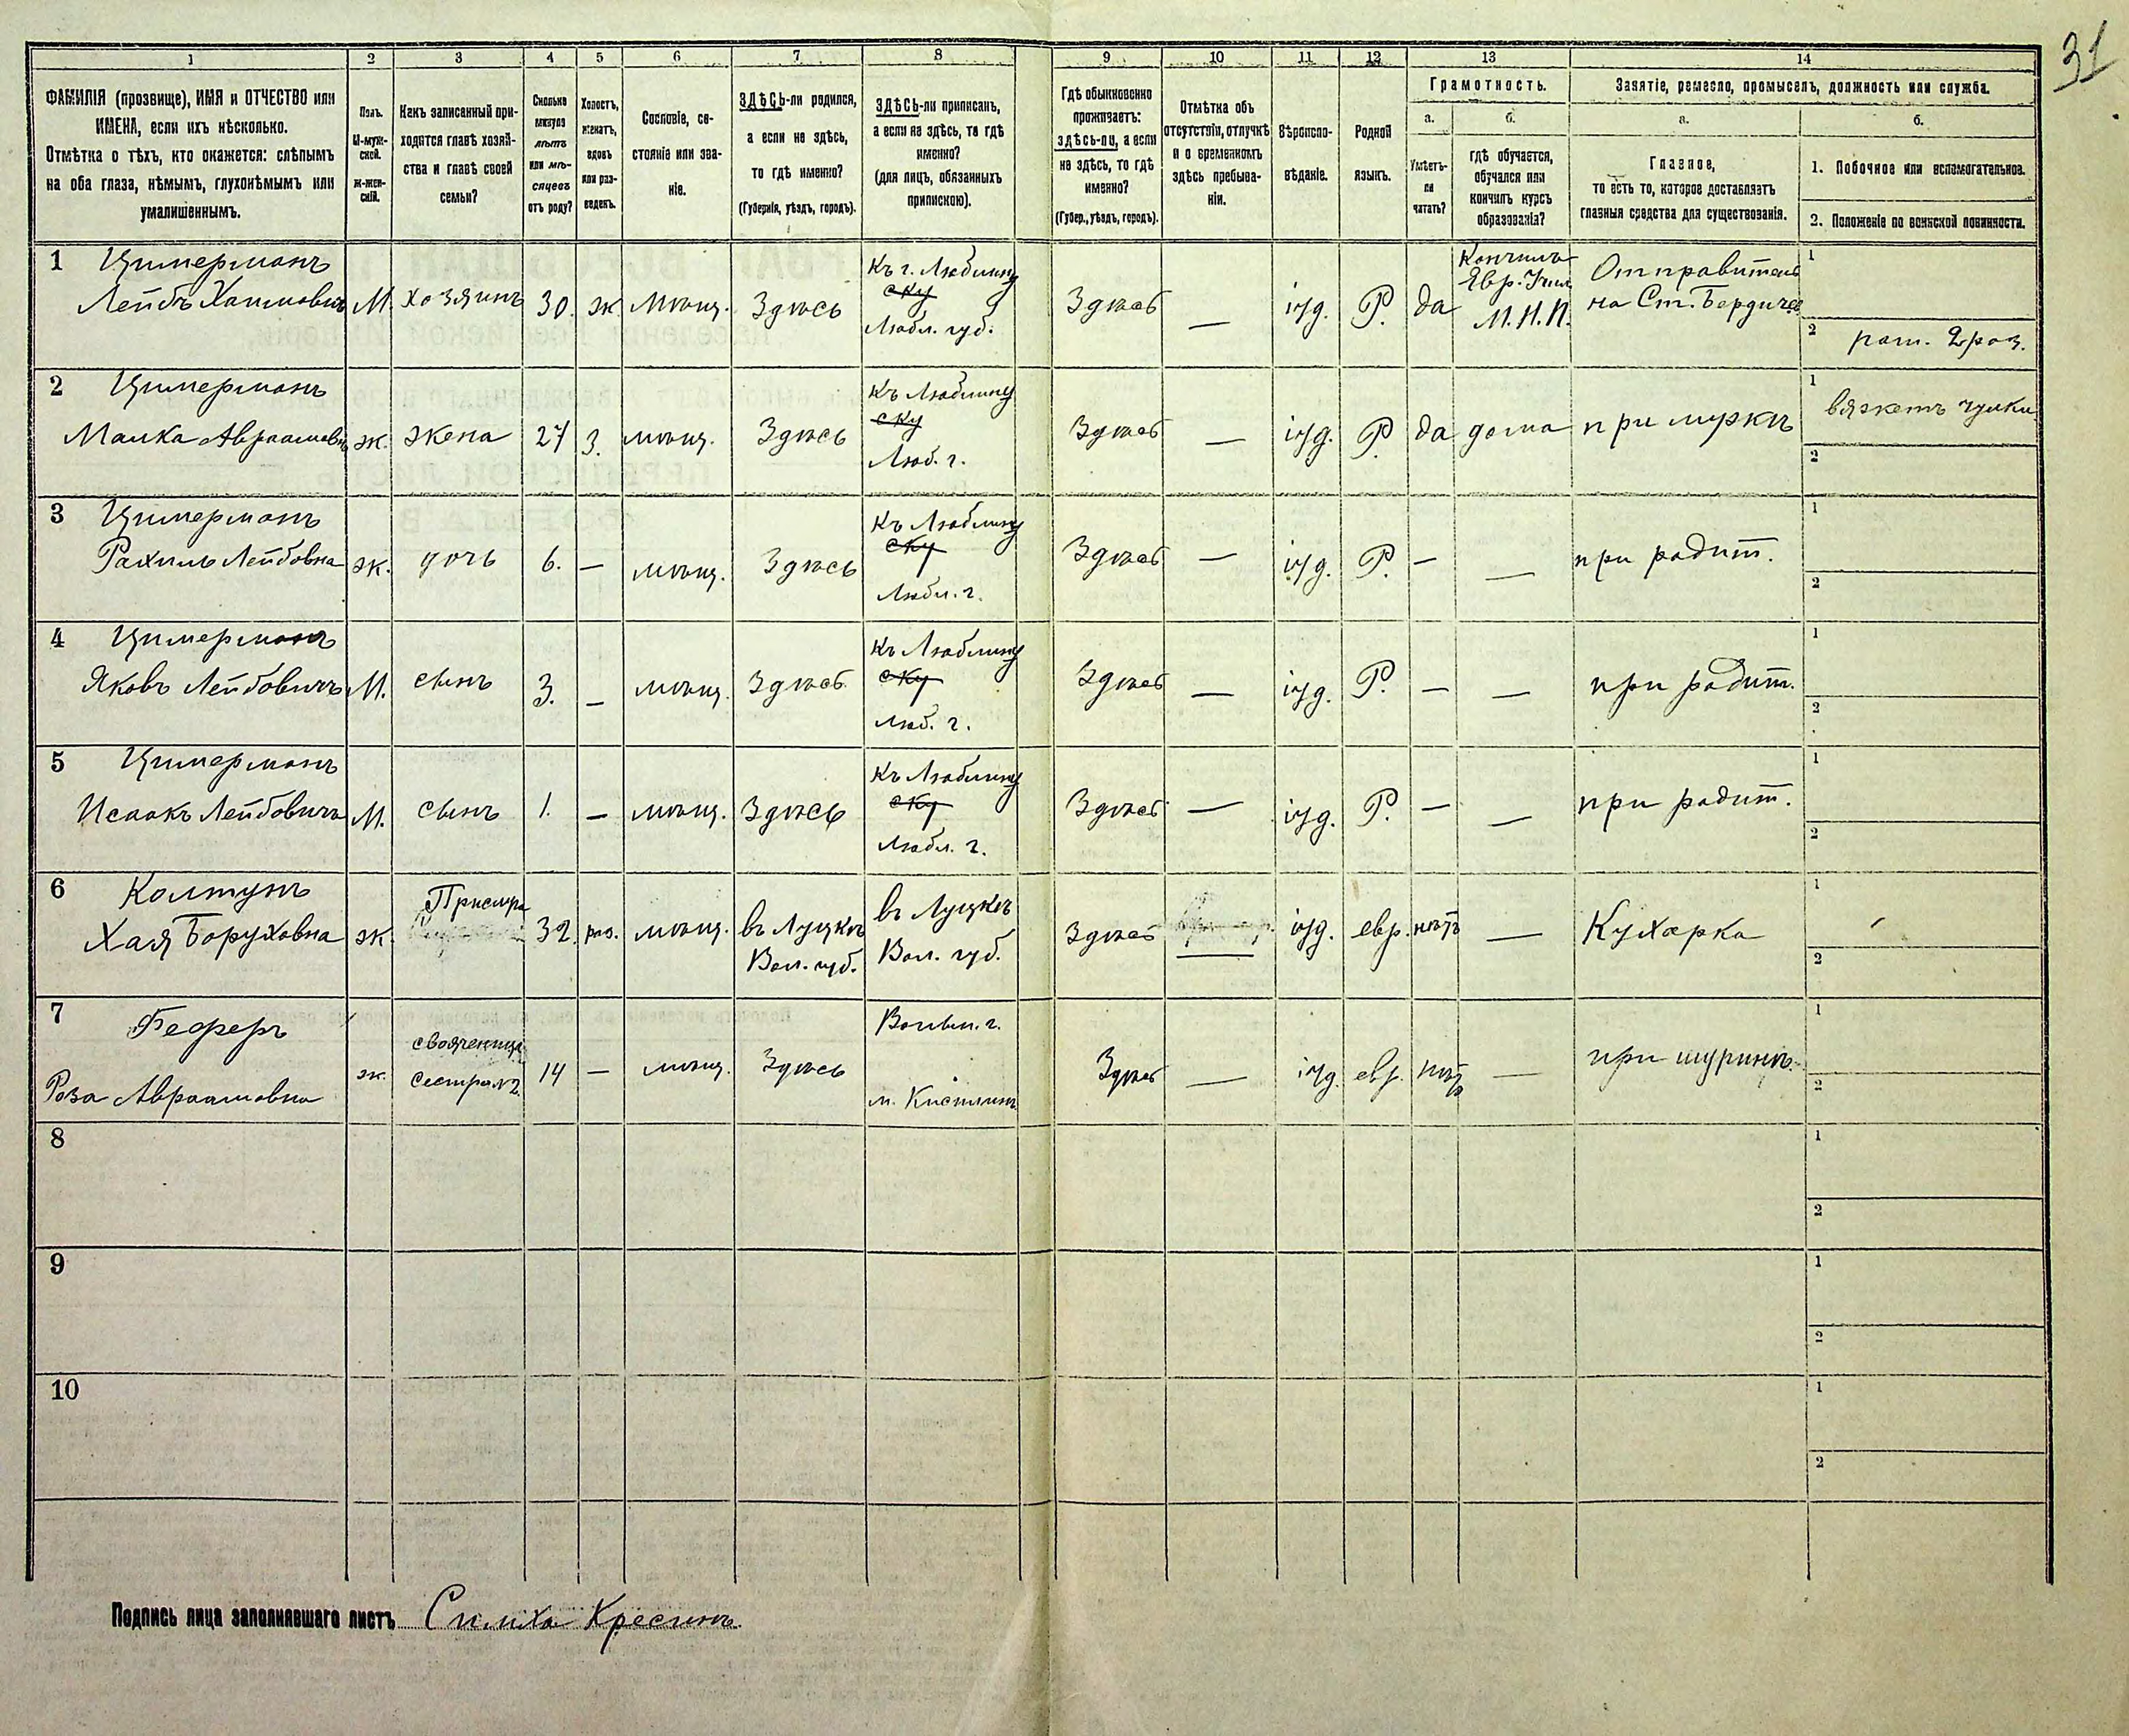 31
1 2 3 4 5 6 7 8 9 10 11 12 13 14
ФАМИЛІЯ (прозвище), ИМЯ и ОТЧЕСТВО или
ИМЕНА, если ихъ нѣсколько.
Отмѣтка о тѣхъ, кто окажется: слѣпымъ
на оба глаза, нѣмымъ, глухонѣмымъ или
умалишеннымъ.
Полъ.
М-муж-
ской.
Ж-жен-
скій.
Какъ записанный при-
ходится главѣ хозяй-
ства и главѣ своей
семьи?
Сколько
минуло
лѣтъ
или мѣ-
сяцевъ
отъ роду?
Холостъ,
женатъ,
вдовъ
или раз-
веденъ.
Сословіе, со-
стояніе или зва-
ніе.
ЗДѢСЬ-ли родился,
а если не здѣсь,
то гдѣ именно?
(Губернія, уѣздъ, городъ).
ЗДѢСЬ-ли приписанъ,
а если не здѣсь, то гдѣ
именно?
(для лицъ, обязанныхъ
припискою).
Гдѣ обыкновенно
проживаетъ:
здѣсь-ли, а если
не здѣсь, то гдѣ
именно?
(Губер., уѣздъ, городъ).
Отмѣтка объ
отсутствіи, отлучкѣ
и о временномъ
здѣсь пребыва-
ніи.
Вѣроиспо-
вѣданіе.
Родной
языкъ.
Грамотность.
а.
Умѣетъ-
ли
читать?
б.
гдѣ обучается,
обучался или
кончилъ курсъ
образованія?
Занятіе, ремесло, промыселъ, должность или служба.
а.
Главное,
то есть то, которое доставляетъ
главныя средства для существованія.
б.
1. Побочное или вспомогательное.
2. Положеніе по воинской повинности.
1 Цимерманъ Къ г. Люблину Кончилъ Отправитель 1
Лейбъ Хаимовичъ М. хозяинъ 30. ж. мѣщ. Здѣсь ску Здѣсь — іуд. Р. да Евр. Учил. на Ст. Бердичев
Любл. губ. М. Н. П. 2 рат. 2 раз.
2 Цимерманъ Къ Люблину 1 вяжетъ чулки
Малка Авраамовна ж. жена 27 з. мѣщ. Здѣсь ску Здѣсь — іуд. Р. да дома при мужѣ
Люб. г. 2
3 Цимерманъ Къ Люблину 1
Рахиль Лейбовна ж. дочь 6. — мѣщ. Здѣсь ску Здѣсь — іуд. Р. — — при родит.
Любл. г. 2
4 Цимерманъ Къ Люблину 1
Яковъ Лейбовичъ М. сынъ 3. — мѣщ. Здѣсь ску Здѣсь — іуд. Р. — — при родит.
Люб. г. 2
5 Цимерманъ Къ Люблину 1
Исаакъ Лейбовичъ М. сынъ 1. — мѣщ. Здѣсь ску Здѣсь — іуд. Р. — — при родит.
Любл. г. 2
6 Колтунъ Прислуга 1
Хая Боруховна ж. 32. раз. мѣщ. въ Луцкѣ въ Луцкѣ Здѣсь — іуд. евр. нѣтъ — Кухарка
Вол. губ. Вол. губ. 2
7 Феферъ свояченица Волын. г. 1
Роза Авраамовна ж. сестра №2. 14 — мѣщ. Здѣсь Здѣсь — іуд. евр. нѣтъ — при шуринѣ. 2
8 1
2
9 1
2
10 1
2
Подпись лица заполнявшаго листъ Симха Кресинъ